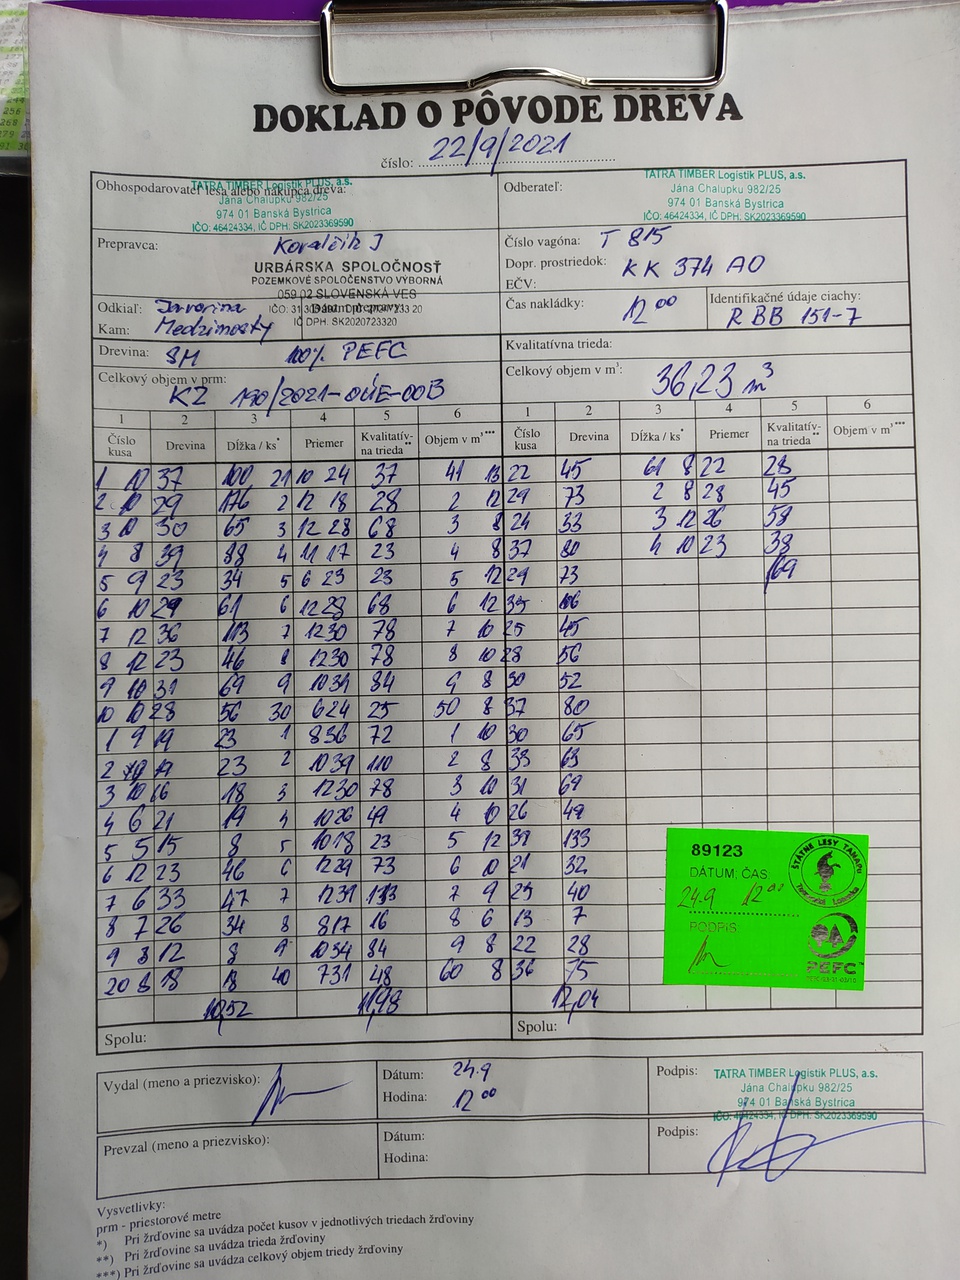 DOKLAD O PÔVODE DREVA
číslo: 22/9/2021
Obhospodarovateľ lesa alebo nákupca dreva:
TATRA TIMBER Logistik PLUS, a.s.
Jána Chalupku 982/25
974 01 Banská Bystrica
IČO: 46424334, IČ DPH: SK2023369590
Odberateľ:
TATRA TIMBER Logistik PLUS, a.s.
Jána Chalupku 982/25
974 01 Banská Bystrica
IČO: 46424334, IČ DPH: SK2023369590
Prepravca: Kovalčík J
URBÁRSKA SPOLOČNOSŤ
POZEMKOVÉ SPOLOČENSTVO VÝBORNÁ
059 02 SLOVENSKÁ VES
IČ DPH: SK2020723320
Číslo vagóna: T 815
Dopr. prostriedok: KK 374 AO
EČV:
Odkiaľ: Javorina
Kam: Medzimosty
Čas nakládky: 12 00
Identifikačné údaje ciachy:
R BB 151-7
Drevina: SM 100% PEFC
Kvalitatívna trieda:
Celkový objem v prm:
KZ 190/2021-OÚE-00B
Celkový objem v m³: 36,23 m³
1 2 3 4 5 6 1 2 3 4 5 6
Číslo kusa Drevina Dĺžka / ks* Priemer Kvalitatív-na trieda** Objem v m³*** Číslo kusa Drevina Dĺžka / ks* Priemer Kvalitatív-na trieda** Objem v m³***
1 10 37 100 21 10 24 37 41 13 22 45 61 8 22 28
2 10 29 176 2 12 18 28 2 12 29 73 2 8 28 45
3 10 30 65 3 12 28 68 3 8 24 33 3 12 26 58
4 8 39 88 4 11 17 23 4 8 37 80 4 10 23 38
5 9 23 34 5 6 23 23 5 12 29 73 1,69
6 10 29 61 6 12 28 68 6 12 35 106
7 12 36 113 7 12 30 78 7 10 25 45
8 12 23 46 8 12 30 78 8 10 28 56
9 10 31 69 9 10 34 84 9 8 30 52
10 10 28 56 30 6 24 25 50 8 37 80
1 9 19 23 1 8 36 72 1 10 30 65
2 19 23 2 10 39 110 2 8 33 63
3 10 16 18 3 12 30 78 3 10 31 69
4 6 21 19 4 10 26 49 4 10 26 49
5 5 15 8 5 10 18 23 5 12 39 133
6 12 23 46 6 12 29 73 6 10 21 32
7 6 33 47 7 12 39 133 7 9 25 40
8 7 26 34 8 8 17 16 8 6 13 7
9 8 12 8 9 10 34 84 9 8 22 28
20 8 18 18 40 7 31 48 60 8 36 75
10,52 11,98 12,04
Spolu: Spolu:
89123
DÁTUM; ČAS
24.9 12 00
PODPIS
ŠTÁTNE LESY TANAPu
Tatranská Lomnica
PEFC™
Vydal (meno a priezvisko):
Dátum: 24.9
Hodina: 12 00
Podpis:
TATRA TIMBER Logistik PLUS, a.s.
Jána Chalupku 982/25
974 01 Banská Bystrica
IČO: 46424334, IČ DPH: SK2023369590
Prevzal (meno a priezvisko):
Dátum:
Hodina:
Podpis:
Vysvetlivky:
prm - priestorové metre
*) Pri žrďovine sa uvádza počet kusov v jednotlivých triedach žrďoviny
**) Pri žrďovine sa uvádza trieda žrďoviny
***) Pri žrďovine sa uvádza celkový objem triedy žrďoviny